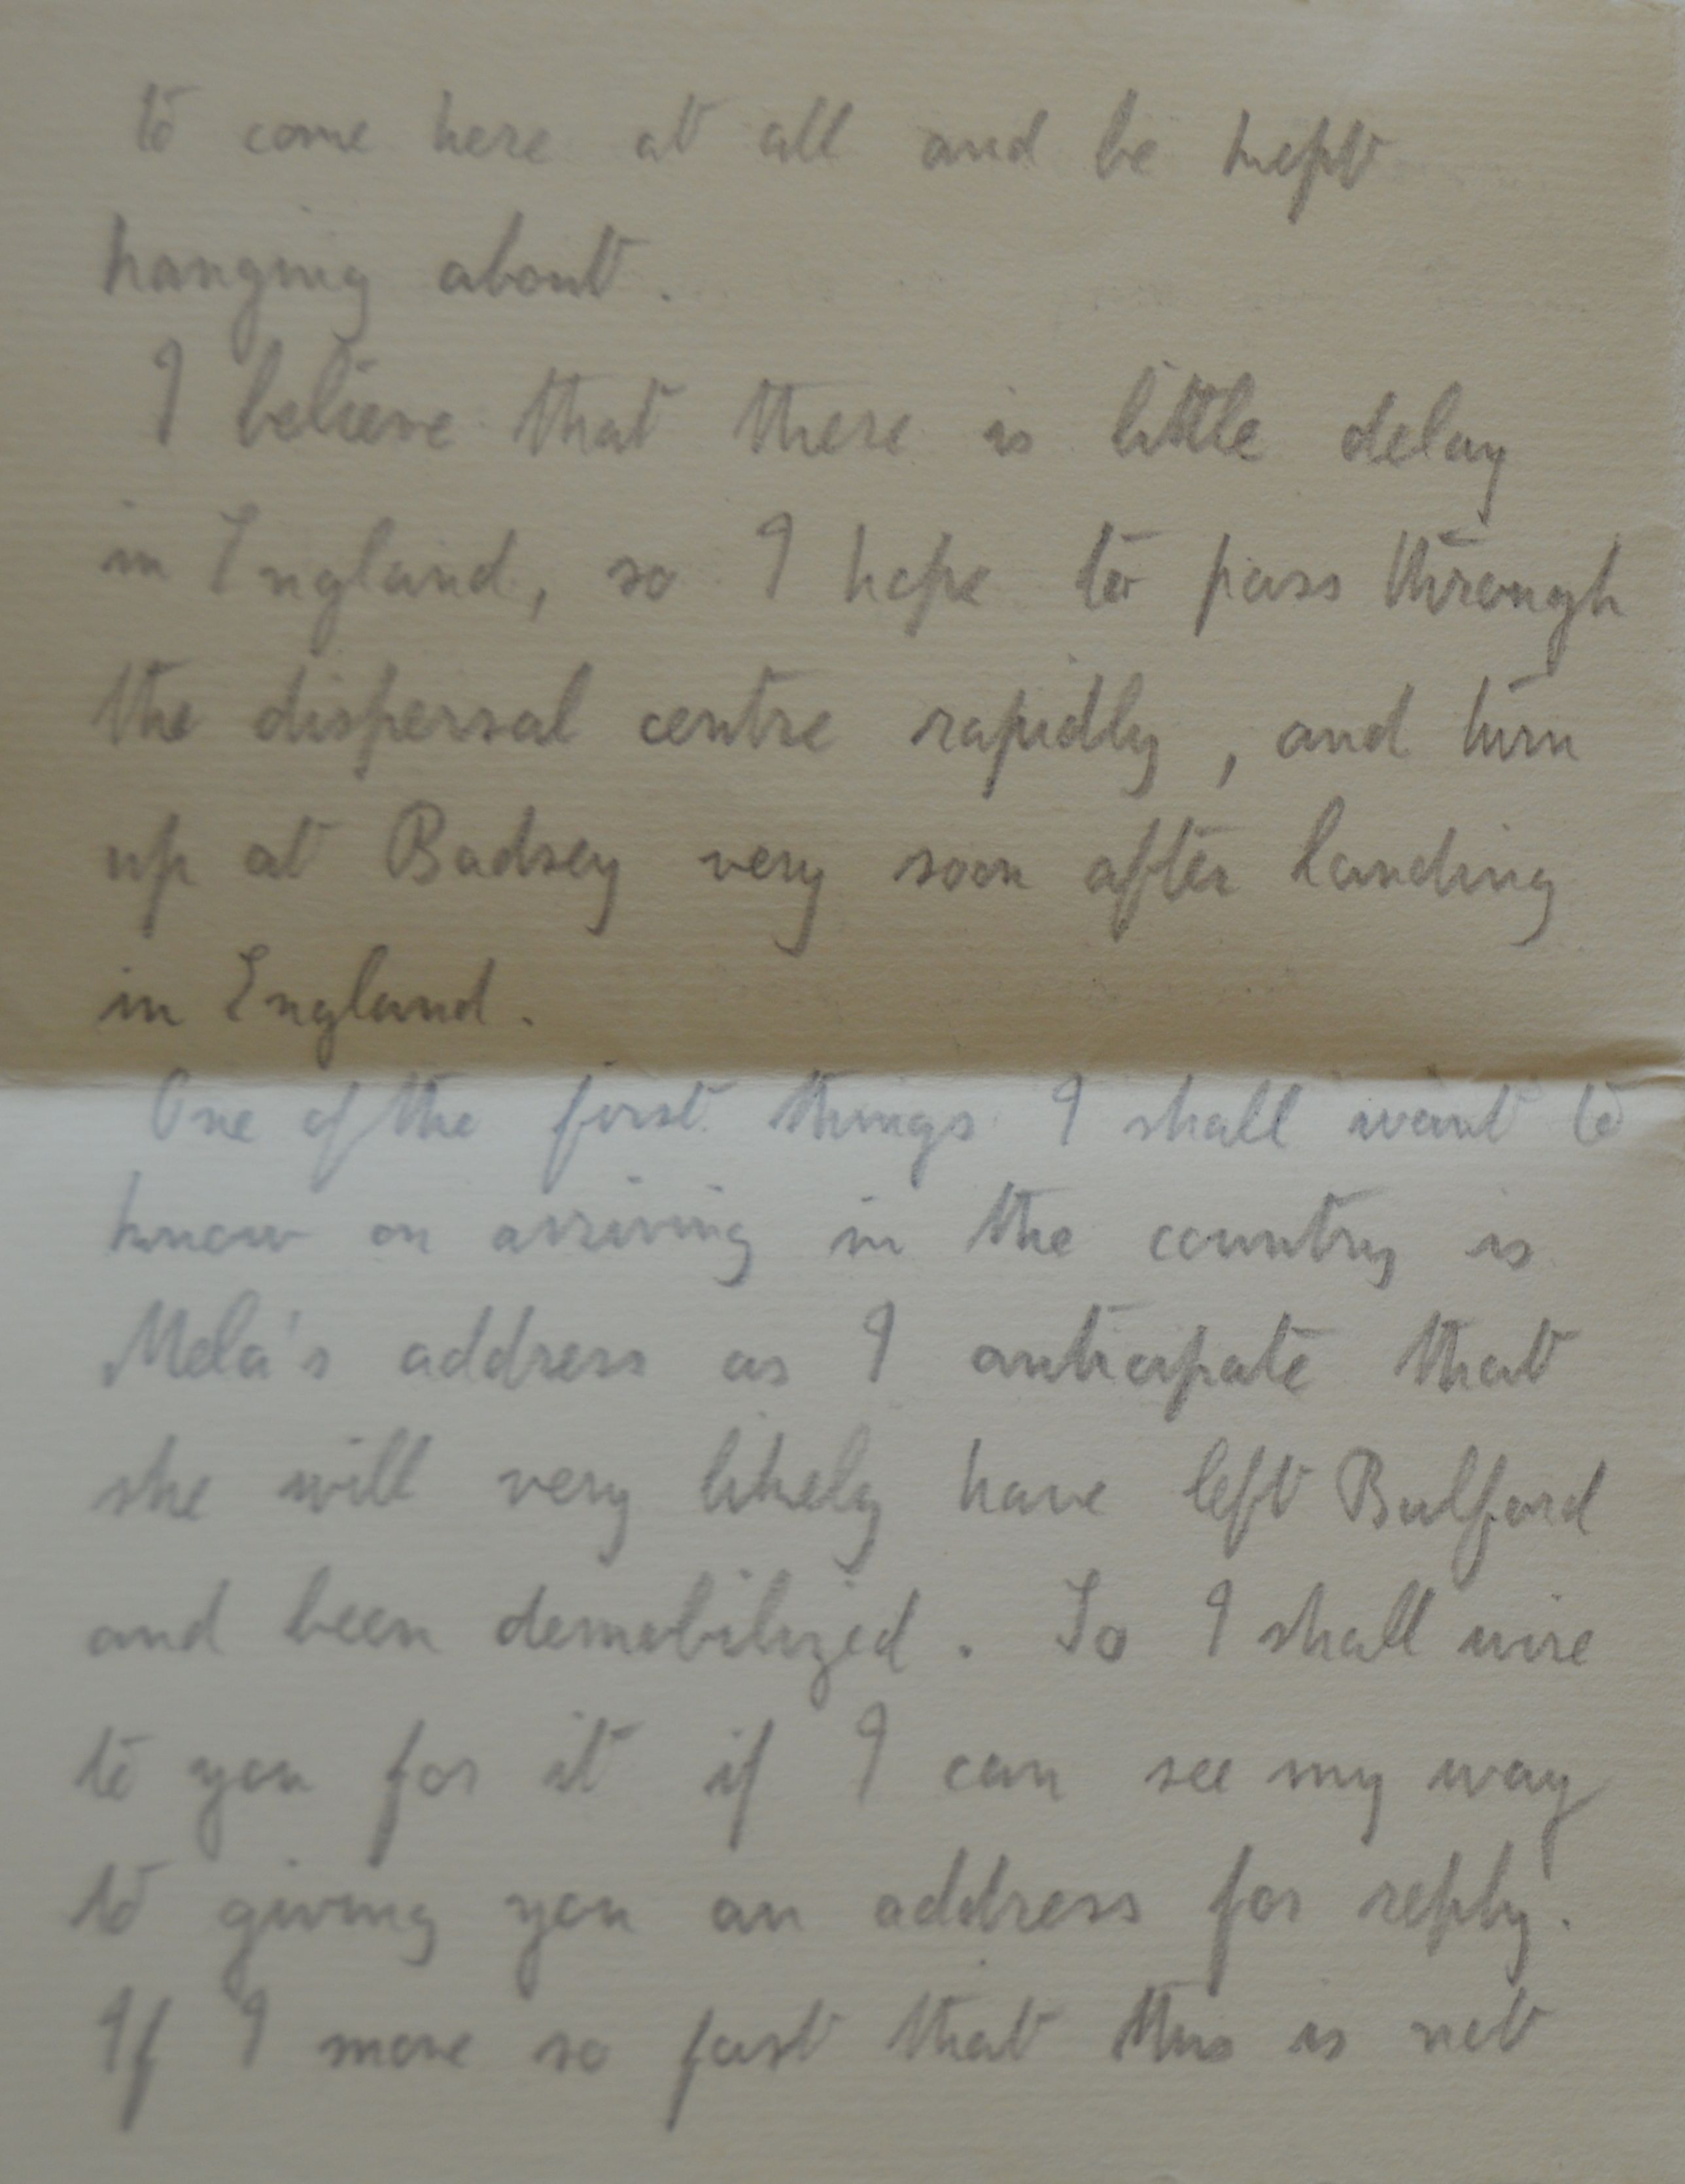 to come here at all and be kept
hanging about.
I believe that there is little delay
in England, so I hope to pass through
the dispersal centre rapidly, and turn
up at Badsey very soon after landing
in England.
One of the first things I shall want to
know on arriving in the country is
Mela's address as I anticipate that
she will very likely have left Bulford
and been demobilized. So I shall wire
to you for it if I can see my way
to giving you an address for reply.
If I move so fast that this is not